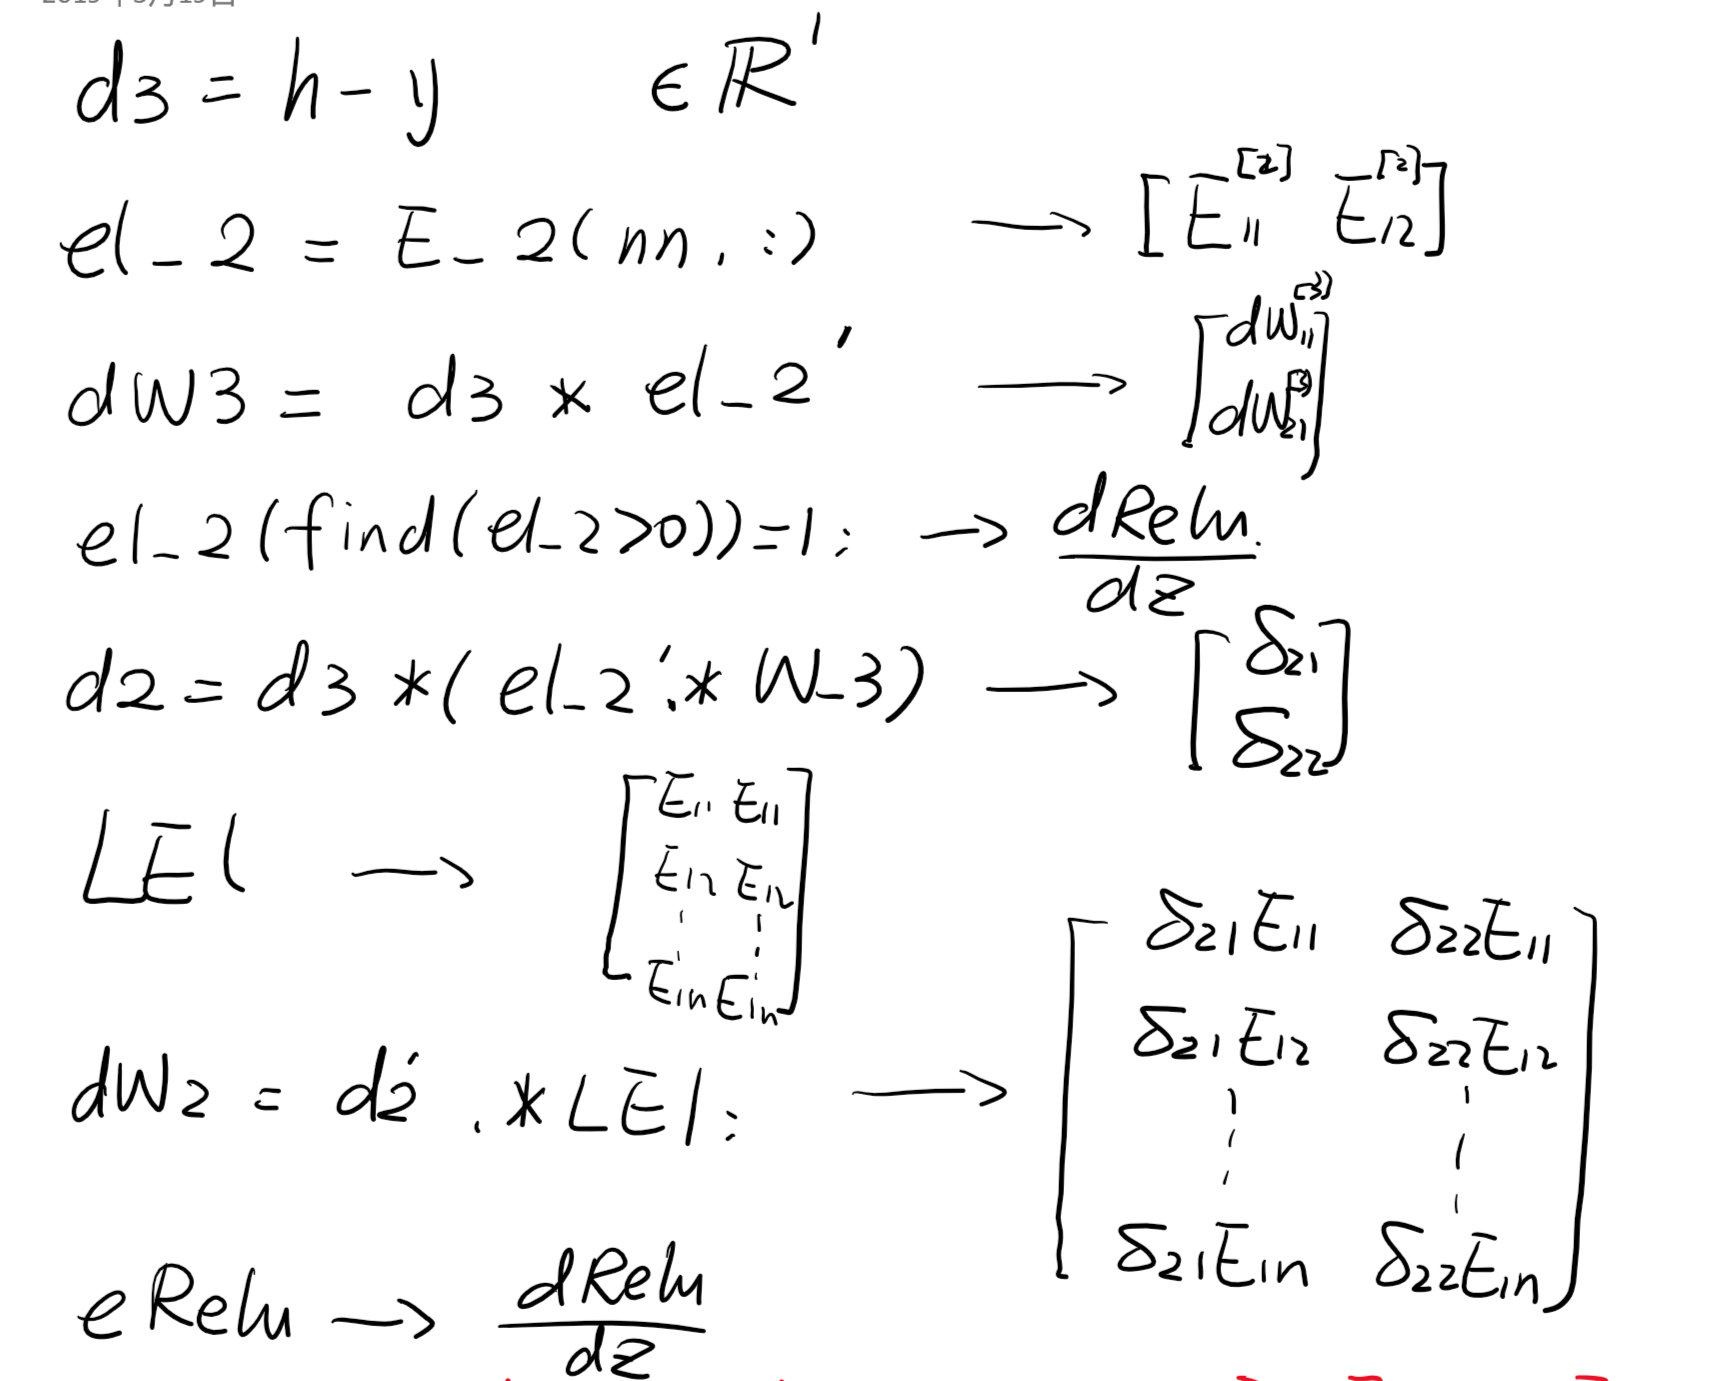 d3 = h - y ∈ ℝ¹
el_2 = E_2(nn, :) → [E₁₁^[2] E₁₂^[2]]
dW3 = d3 * el_2' → [dW₁₁^[3]
dW₂₁^[3]]
el_2(find(el_2>0))=1; → dRelu/dz
d2 = d3 *( el_2'.* W_3) → [δ₂₁
δ₂₂]
LE1 → [E₁₁ E₁₁
E₁₂ E₁₂
⋮ ⋮
E₁ₙ E₁ₙ]
dW2 = d2' .* LE1; → [δ₂₁E₁₁ δ₂₂E₁₁
δ₂₁E₁₂ δ₂₂E₁₂
⋮ ⋮
δ₂₁E₁ₙ δ₂₂E₁ₙ]
eRelu → dRelu/dz